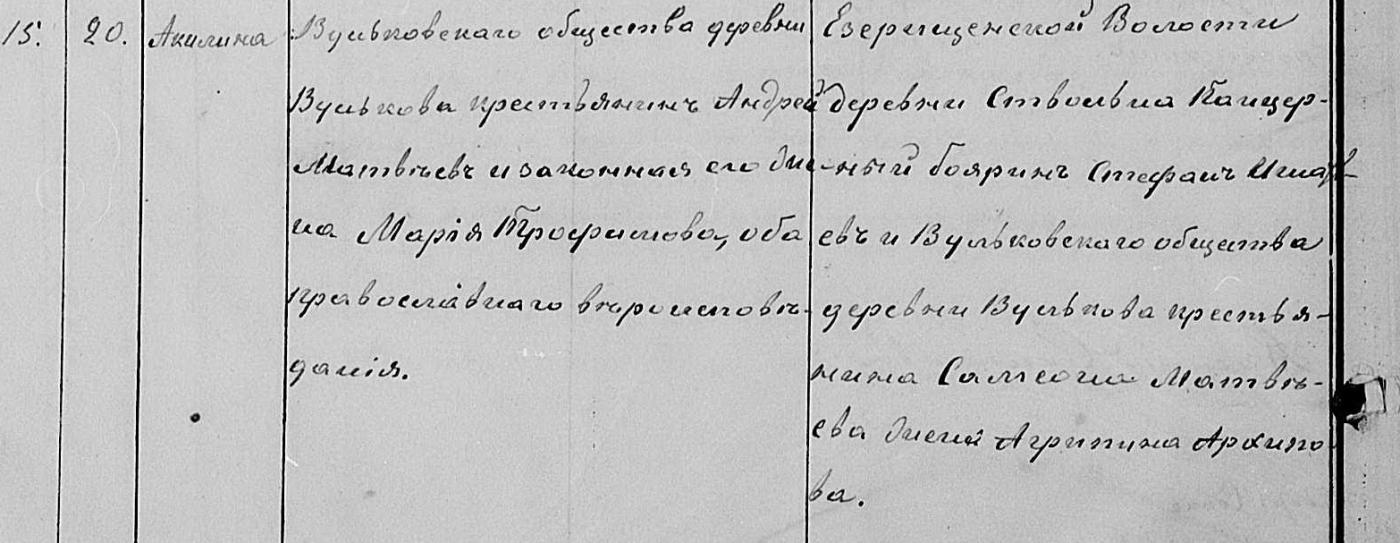 15. 20. Акилина
Вульковскаго общества деревни
Вулькова крестьянинъ Андрей
Матвѣевъ и законная его же-
на Марія Трофимова, оба
православнаго вѣроисповѣ-
данія.
Езерищенской Волости
деревни Ствольна Канцер-
ный бояринъ Стефанъ
евъ и Вульковскаго общества
деревни Вулькова крестья-
нина Самсона Матвѣ-
ева жена Агрипина Архипо
ва.